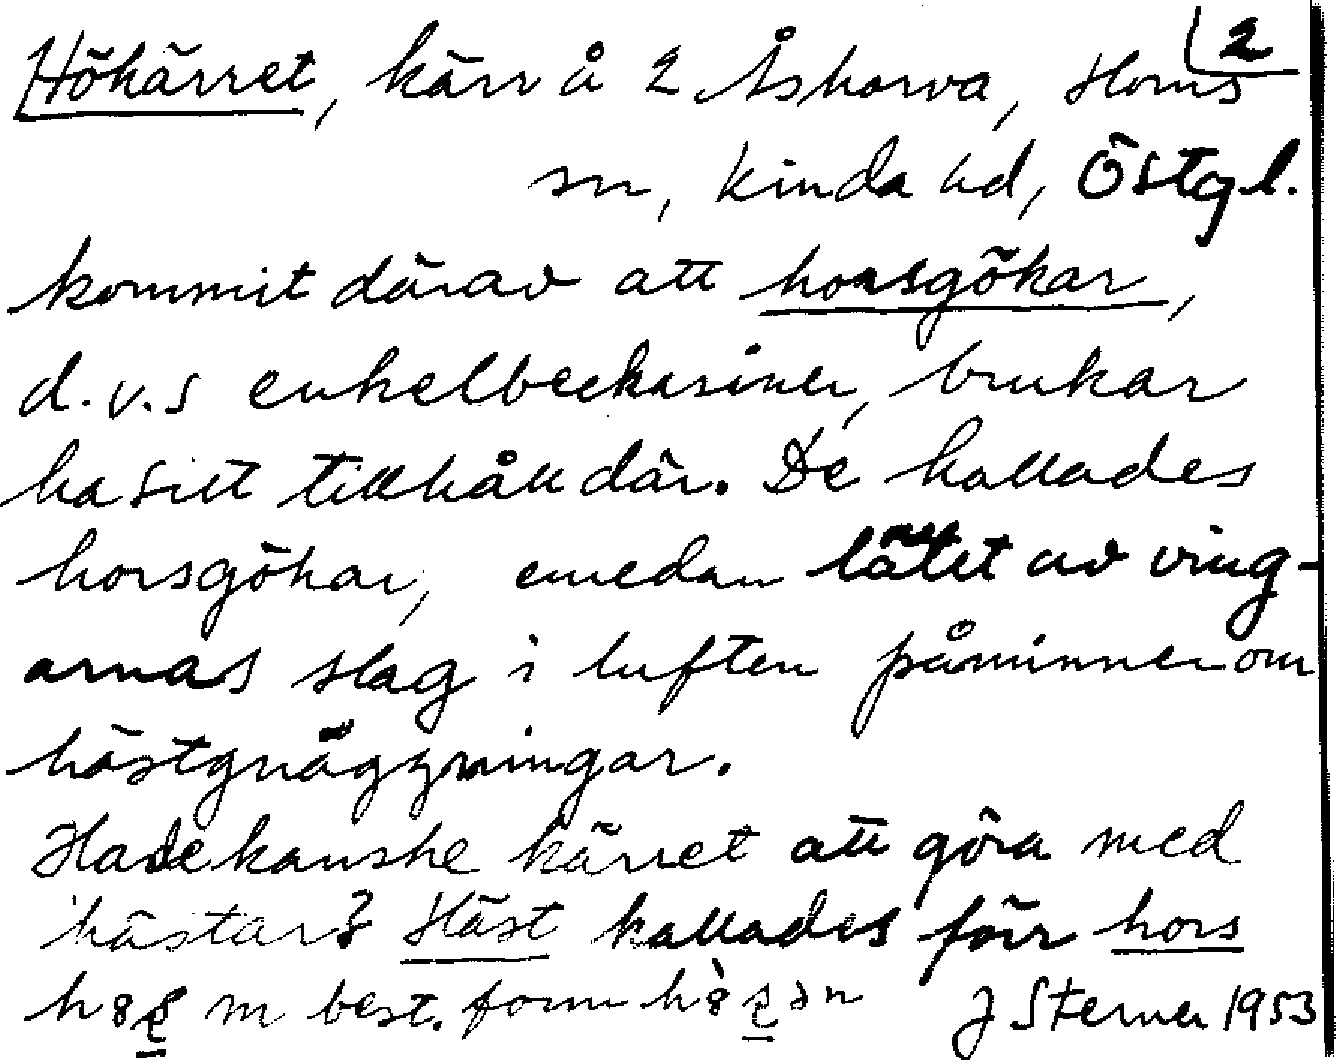 2
Hökärret, kärr å 2 Åskorva, Horns
sn, Kinda hd, Östgl.
kommit därav att horsgökar,
d.v.s enkelbeckasiner, brukar
ha sitt tillhåll där. De kallades
horsgökar, emedan lätet av ving-
arnas slag i luften påminner om
hästgnäggningar.
Hade kanske kärret att göra med
hästar? Häst kallades förr hors
m best. form
J Sterner 1953